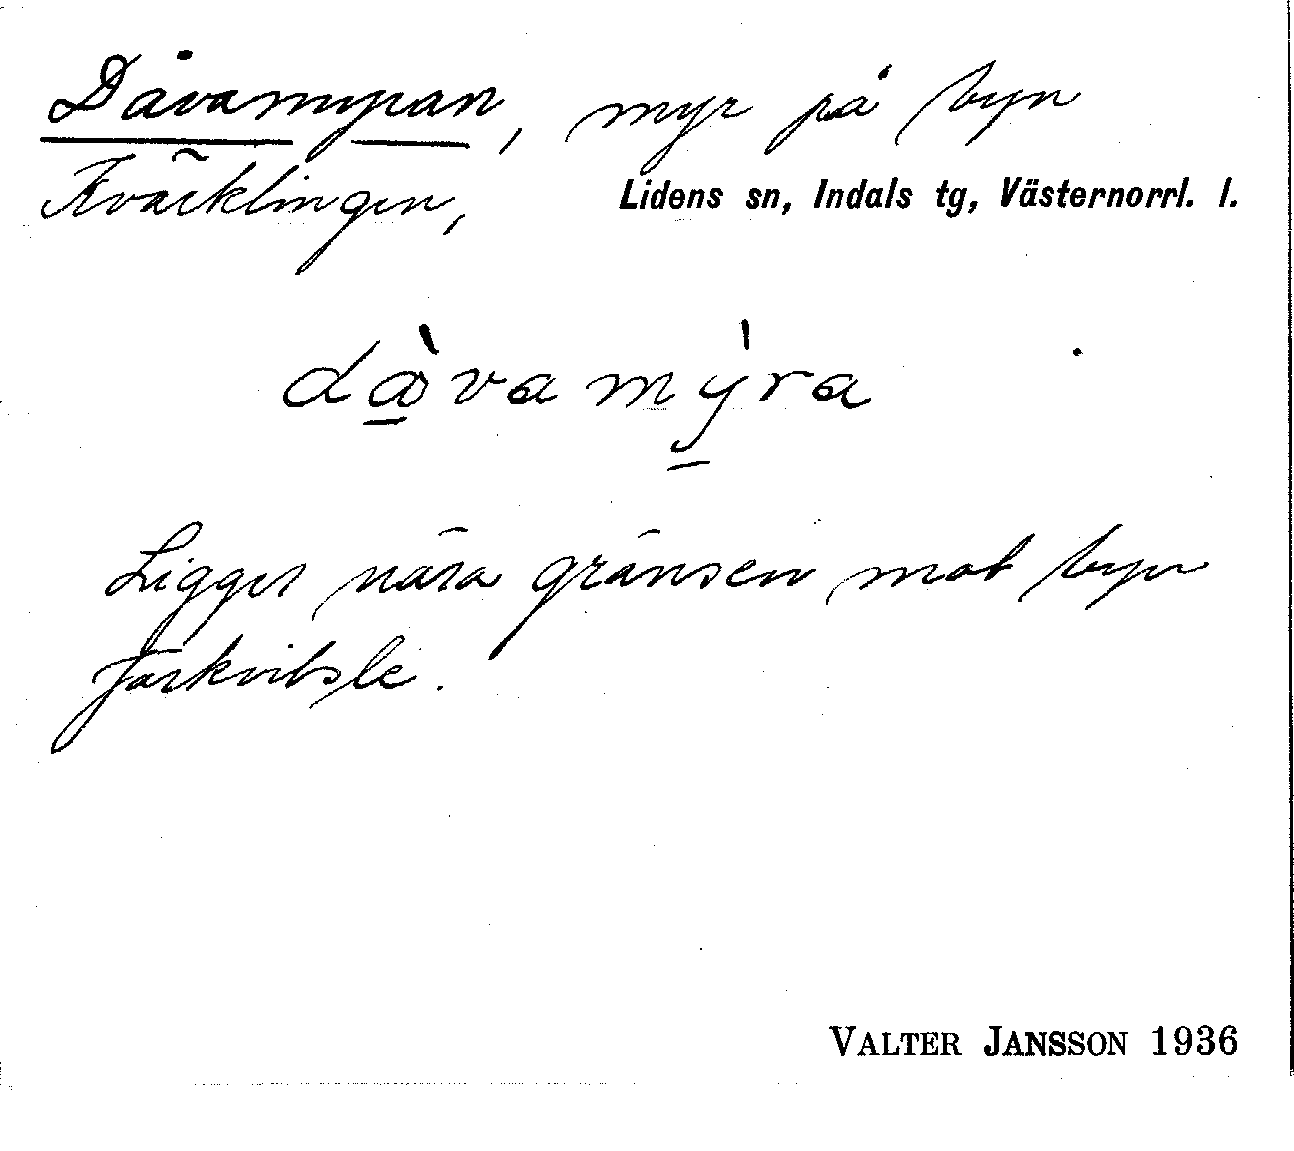 Dåvamyran, myr på byn
Kväcklingen, Lidens sn, Indals tg, Västernorrl. l.
då̱̀vamỳ̱ra
Ligger nära gränsen mot byn
Järkvitsle.
VALTER JANSSON 1936